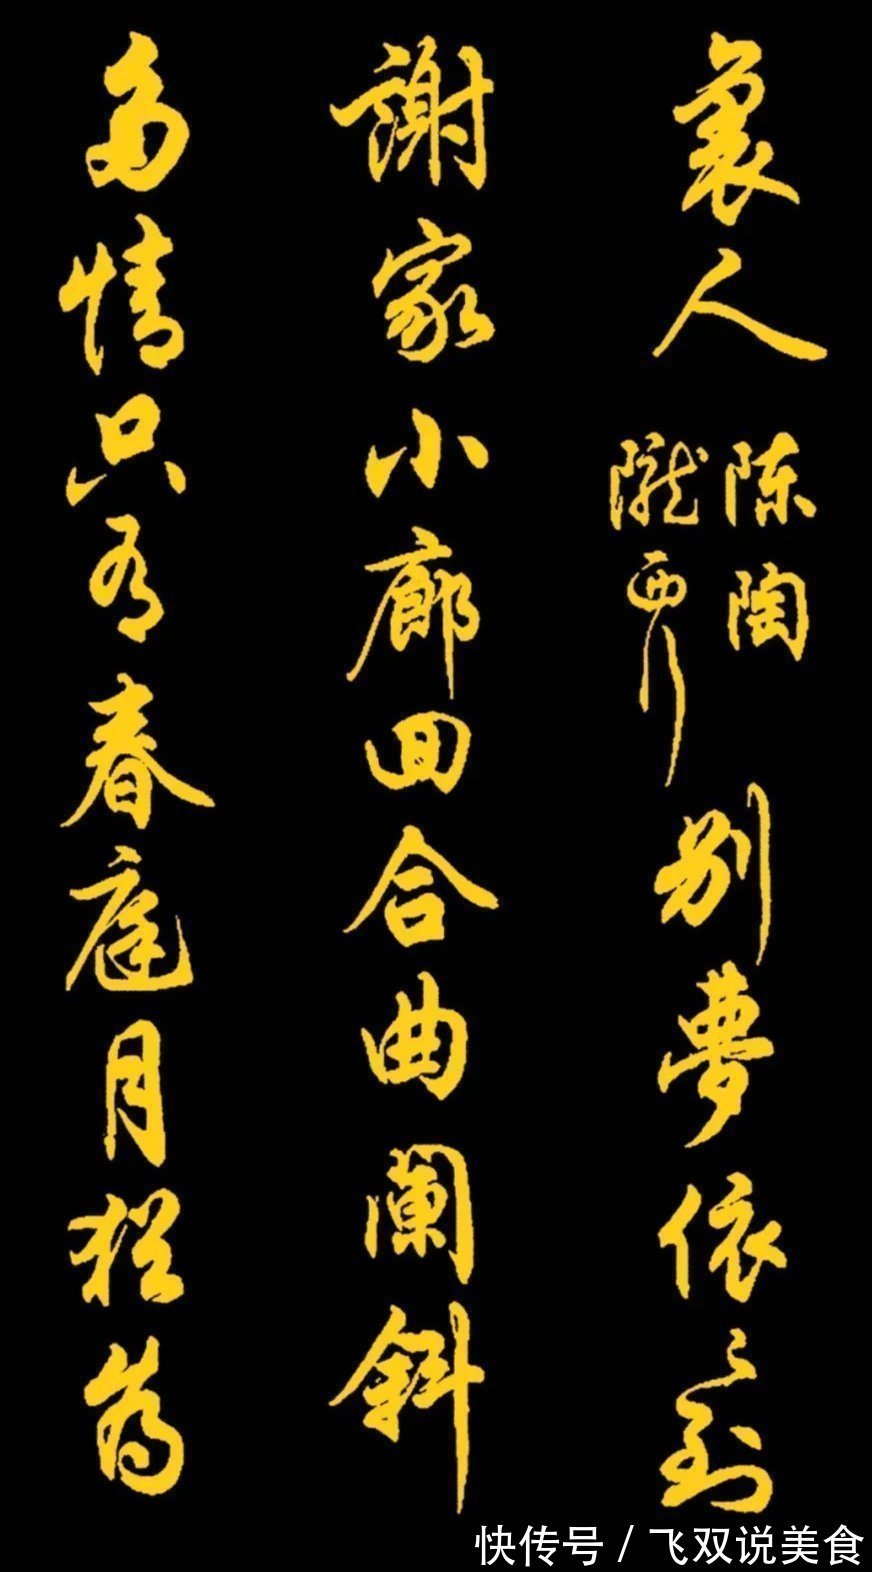 裏人
陈陶
陇西行
别夢依々到
謝家小廊回合曲阑斜
多情只有春庭月猶为
快传号 / 飞双说美食